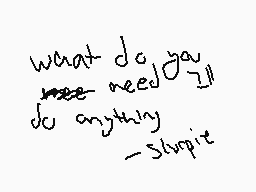 what do you
need I'll
do anything
- Slurpie